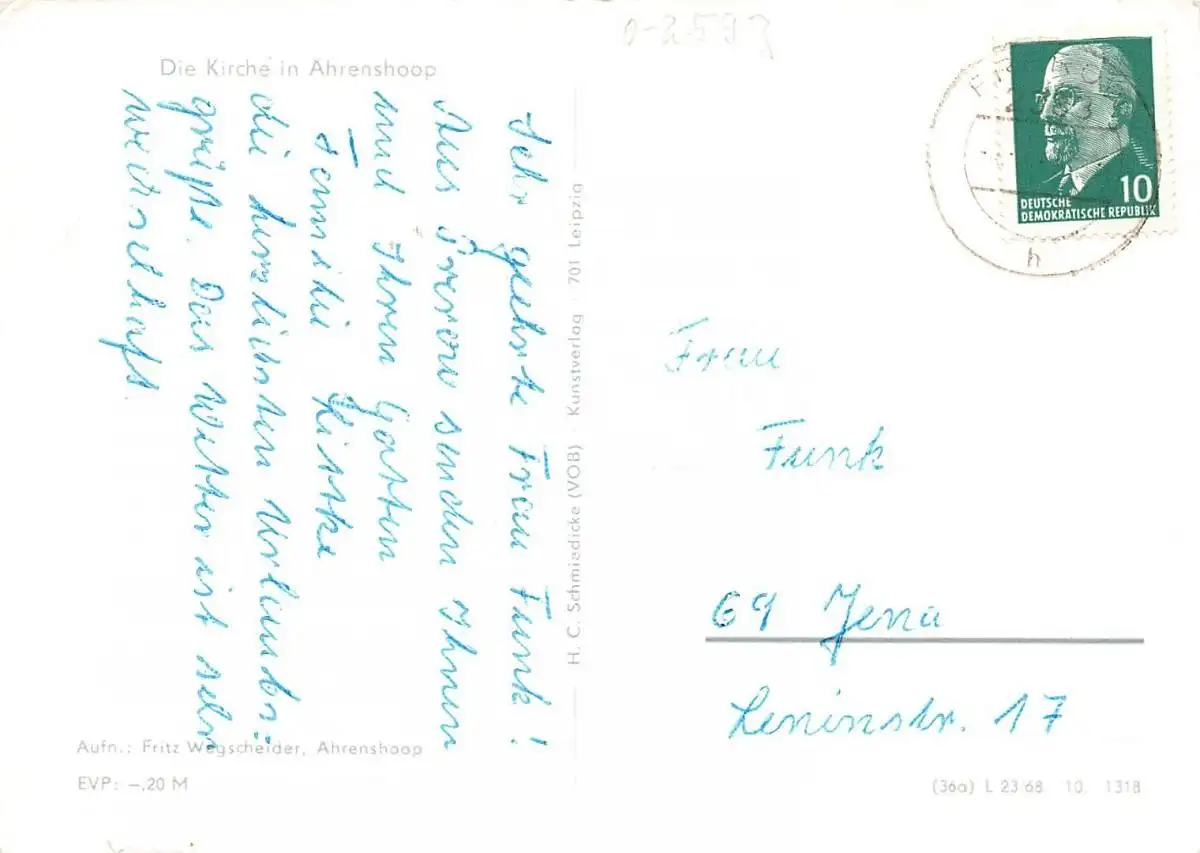 Die Kirche in Ahrenshoop
Sehr geehrte Frau Funk!
Aus Prerow senden Ihnen
und Ihren Gatten
Familie Kiske
die herzlichsten Urlaubs-
grüße. Das Wetter ist sehr
wechselhaft.
Aufn.: Fritz Wegscheider, Ahrenshoop
EVP: –,20 M
H. C. Schmiedicke (VOB) · Kunstverlag · 701 Leipzig
0-2593
10
DEUTSCHE
DEMOKRATISCHE REPUBLIK
h
Frau
Funk
69 Jena
Leninstr. 17
(36a) L 23 68 10. 1318